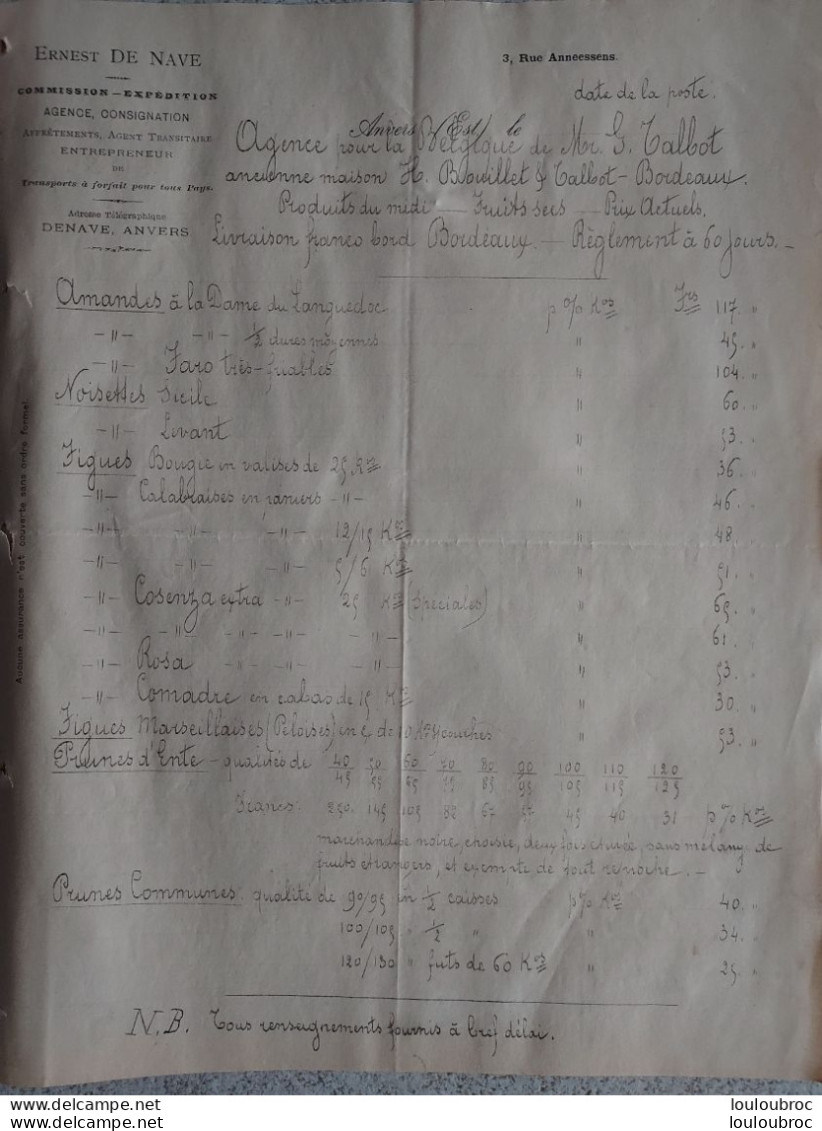 ERNEST DE NAVE
3, Rue Anneessens.
COMMISSION – EXPÉDITION
AGENCE, CONSIGNATION
AFFRÈTEMENTS, AGENT TRANSITAIRE
ENTREPRENEUR
DE
Transports à forfait pour tous Pays.
Adresse Télégraphique
DENAVE, ANVERS
date de la poste.
Anvers (Est) le
Agence pour la Belgique de Mr. G. Talbot
ancienne maison H. Brouillet & Talbot - Bordeaux.
Produits du midi — Fruits secs — Prix Actuels.
Livraison franco bord Bordeaux. — Règlement à 60 jours. -
Amandes à la Dame du Languedoc p % Kos Frs 117 "
-"- -"- ½ dures moyennes " 45. "
-"- Faro très-friables " 104. "
Noisettes Sicile " 60. "
-"- Levant " 53. "
Figues Bougie en valises de 25 Kos " 36 "
-"- Calabraises en paniers -"- " 46 "
-"- -"- -"- 12/15 Kos " 48. "
-"- -"- -"- 5/6 Kos " 51. "
-"- Cosenza extra -"- 25 Kos (Spéciales) " 65. "
-"- -"- -"- -"- -"- " 61. "
-"- Rosa -"- -"- -"- " 53. "
-"- Comadre en cabas de 15 Kos " 30. "
Figues Marseillaises (Peloises) en c de 10 Kos 4 couches " 53. "
Prunes d'Ente - qualités de 40/45 50/55 60/65 70/75 80/85 90/95 100/105 110/115 120/125
Francs: 250. 145 105 82 67 57 45 40 31 p % Kos
marchandise noire, choisie, deux fois étuvée, sans mélang. de
fruits étrangers, et exempte de tout reproche. -
Prunes Communes: qualité de 90/95 en ½ caisses p % Kos 40. "
100/105 " ½ " " 34. "
120/130 " futs de 60 Kos " 25. "
N.B. Tous renseignements fournis à bref délai.
Aucune assurance n'est couverte sans ordre formel.
louloubroc
louloubroc
www.delcampe.net